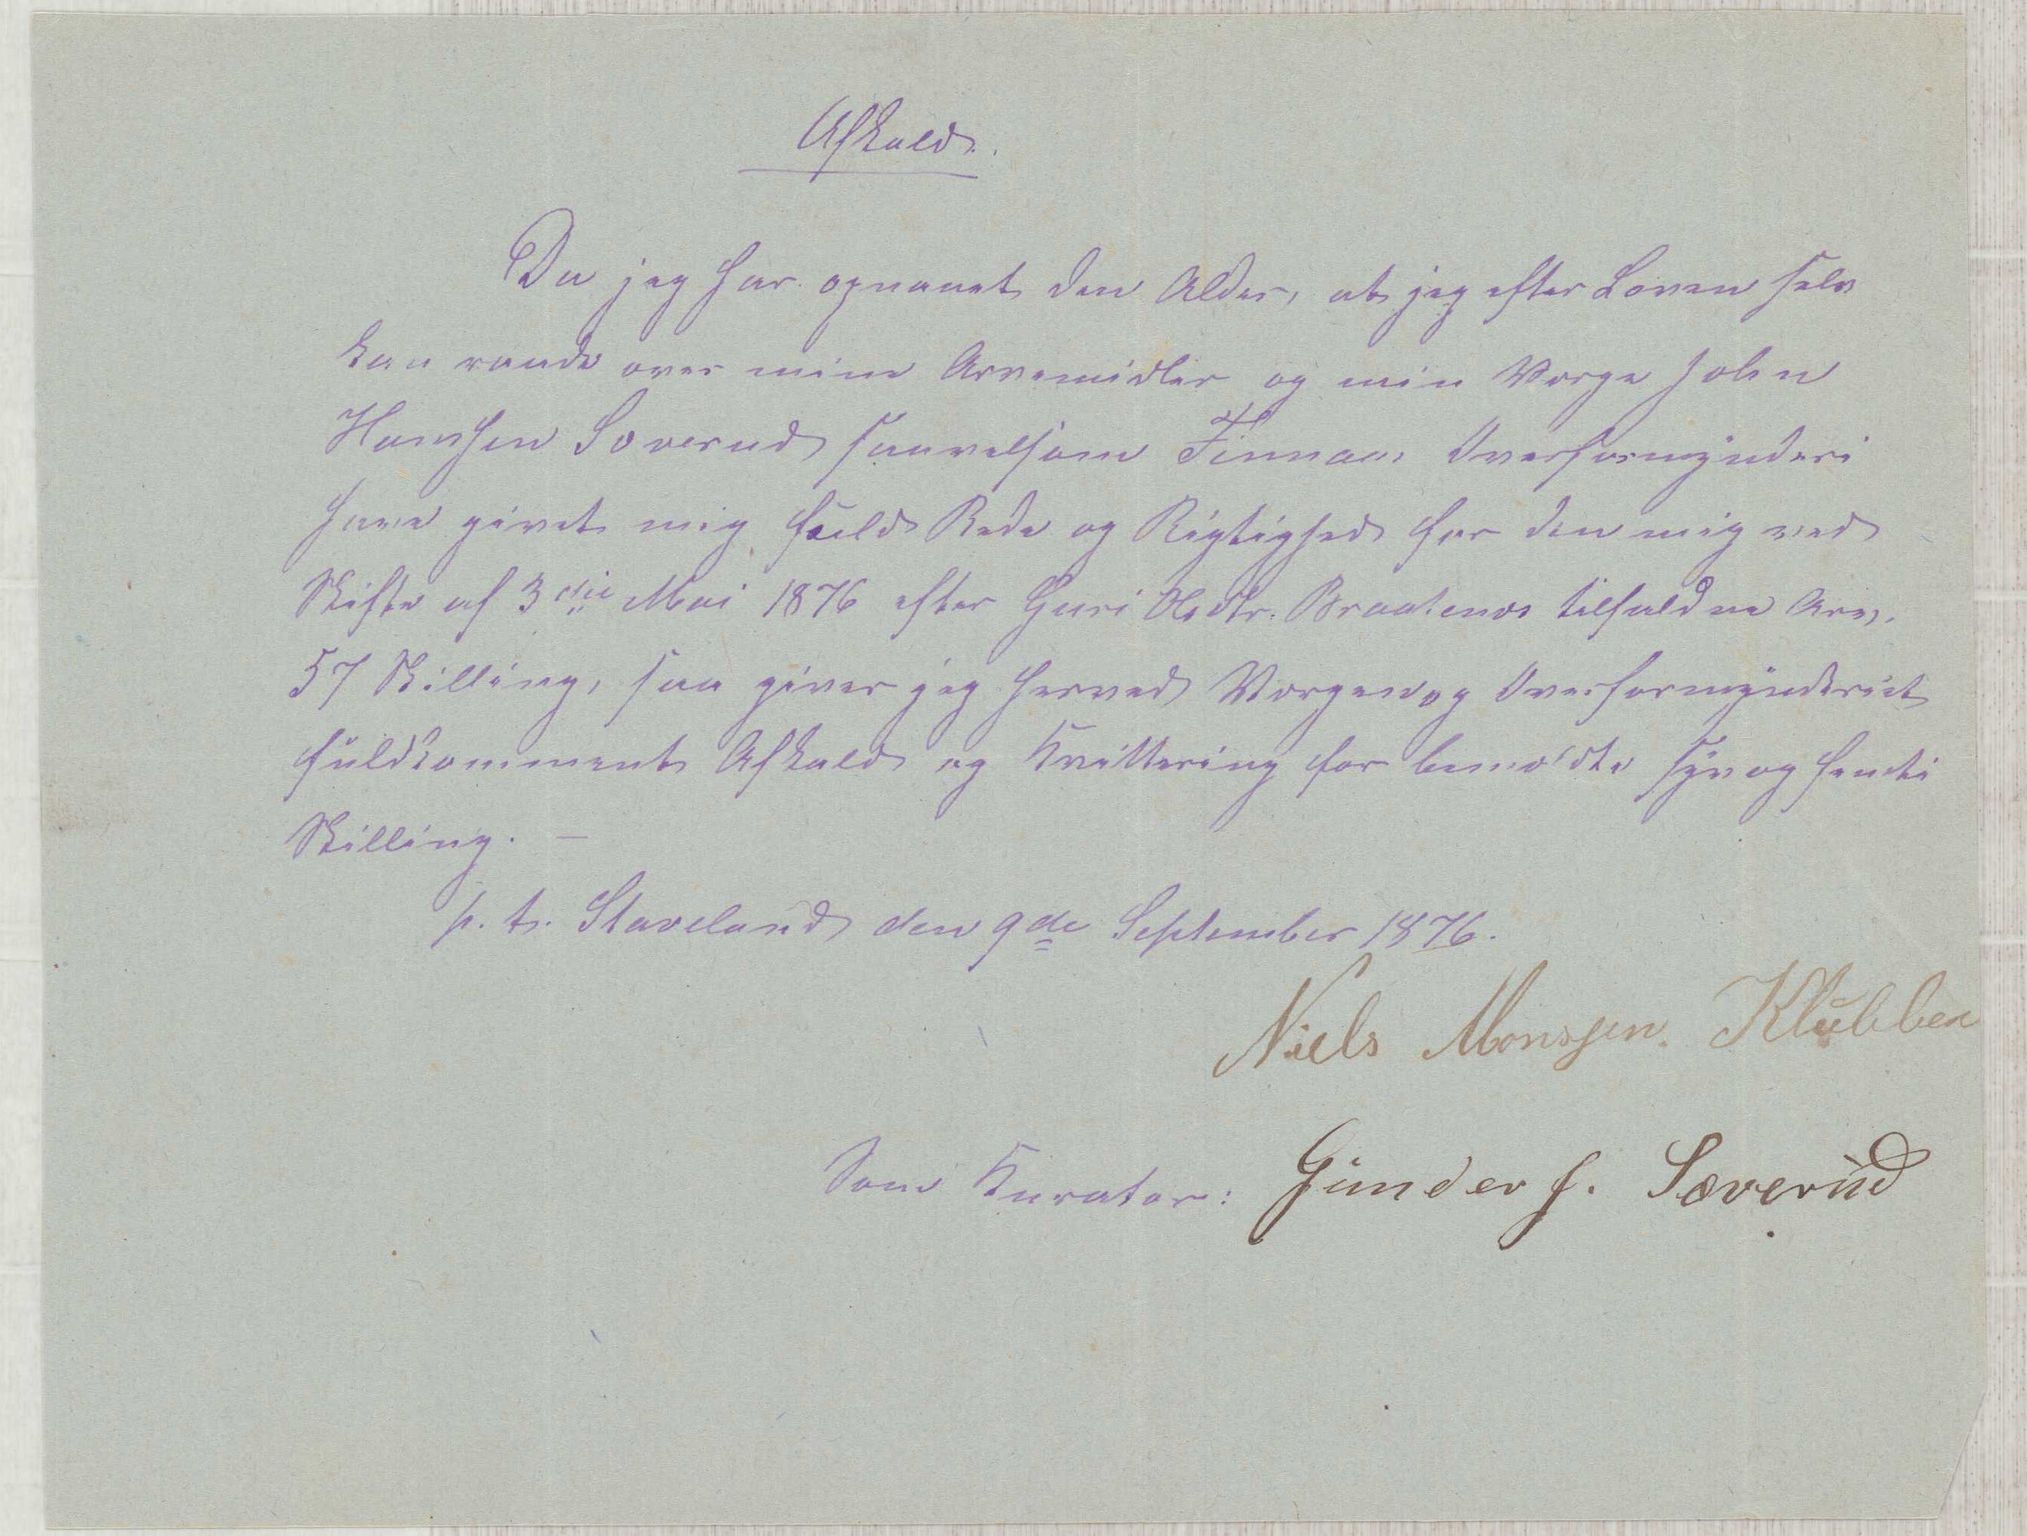 Afkald.
Da jeg har opnaaet den Alder, at jeg efter Loven selv
kan raade over mine Arvemidler og min Verge John
Hanssen Soverud saavelsom Finnaas Overformynderi
have givet mig fuld Rede og Rigtighed for den mig ved
Skifte af 3die Mai 1876 efter Guri Olsdtr. Braatenes tilfaldne Arv,
57 Skilling, saa giver jeg herved Vergen og Overformynderiet
fuldkomment Afkald og Kvittering for benævnte syv og femti
Skilling. —
p. t. Staveland den 9de September 1876.
Niels Monssen Klubben
Som Kurator: Gunder J. Soverud